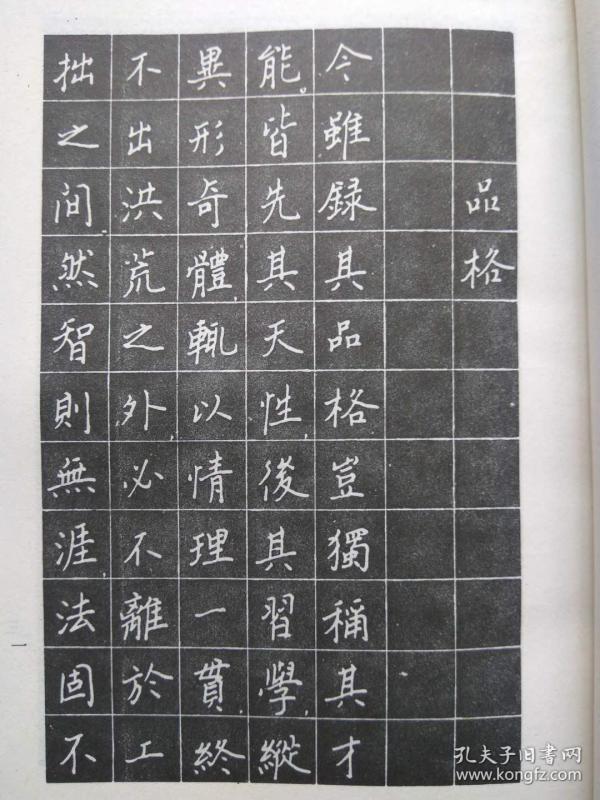 品格
今雖録其品格豈獨稱其才
能。皆先其天性,後其習學,縱
異形奇體,輒以情理一貫,終
不出洪荒之外,必不離於工
拙之间然智則無涯,法固不
一
孔夫子旧书网
www.kongfz.com